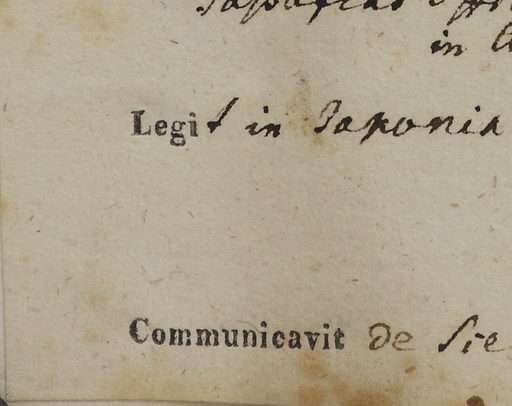 in
Legit in Japonia
Communicavit de Sie